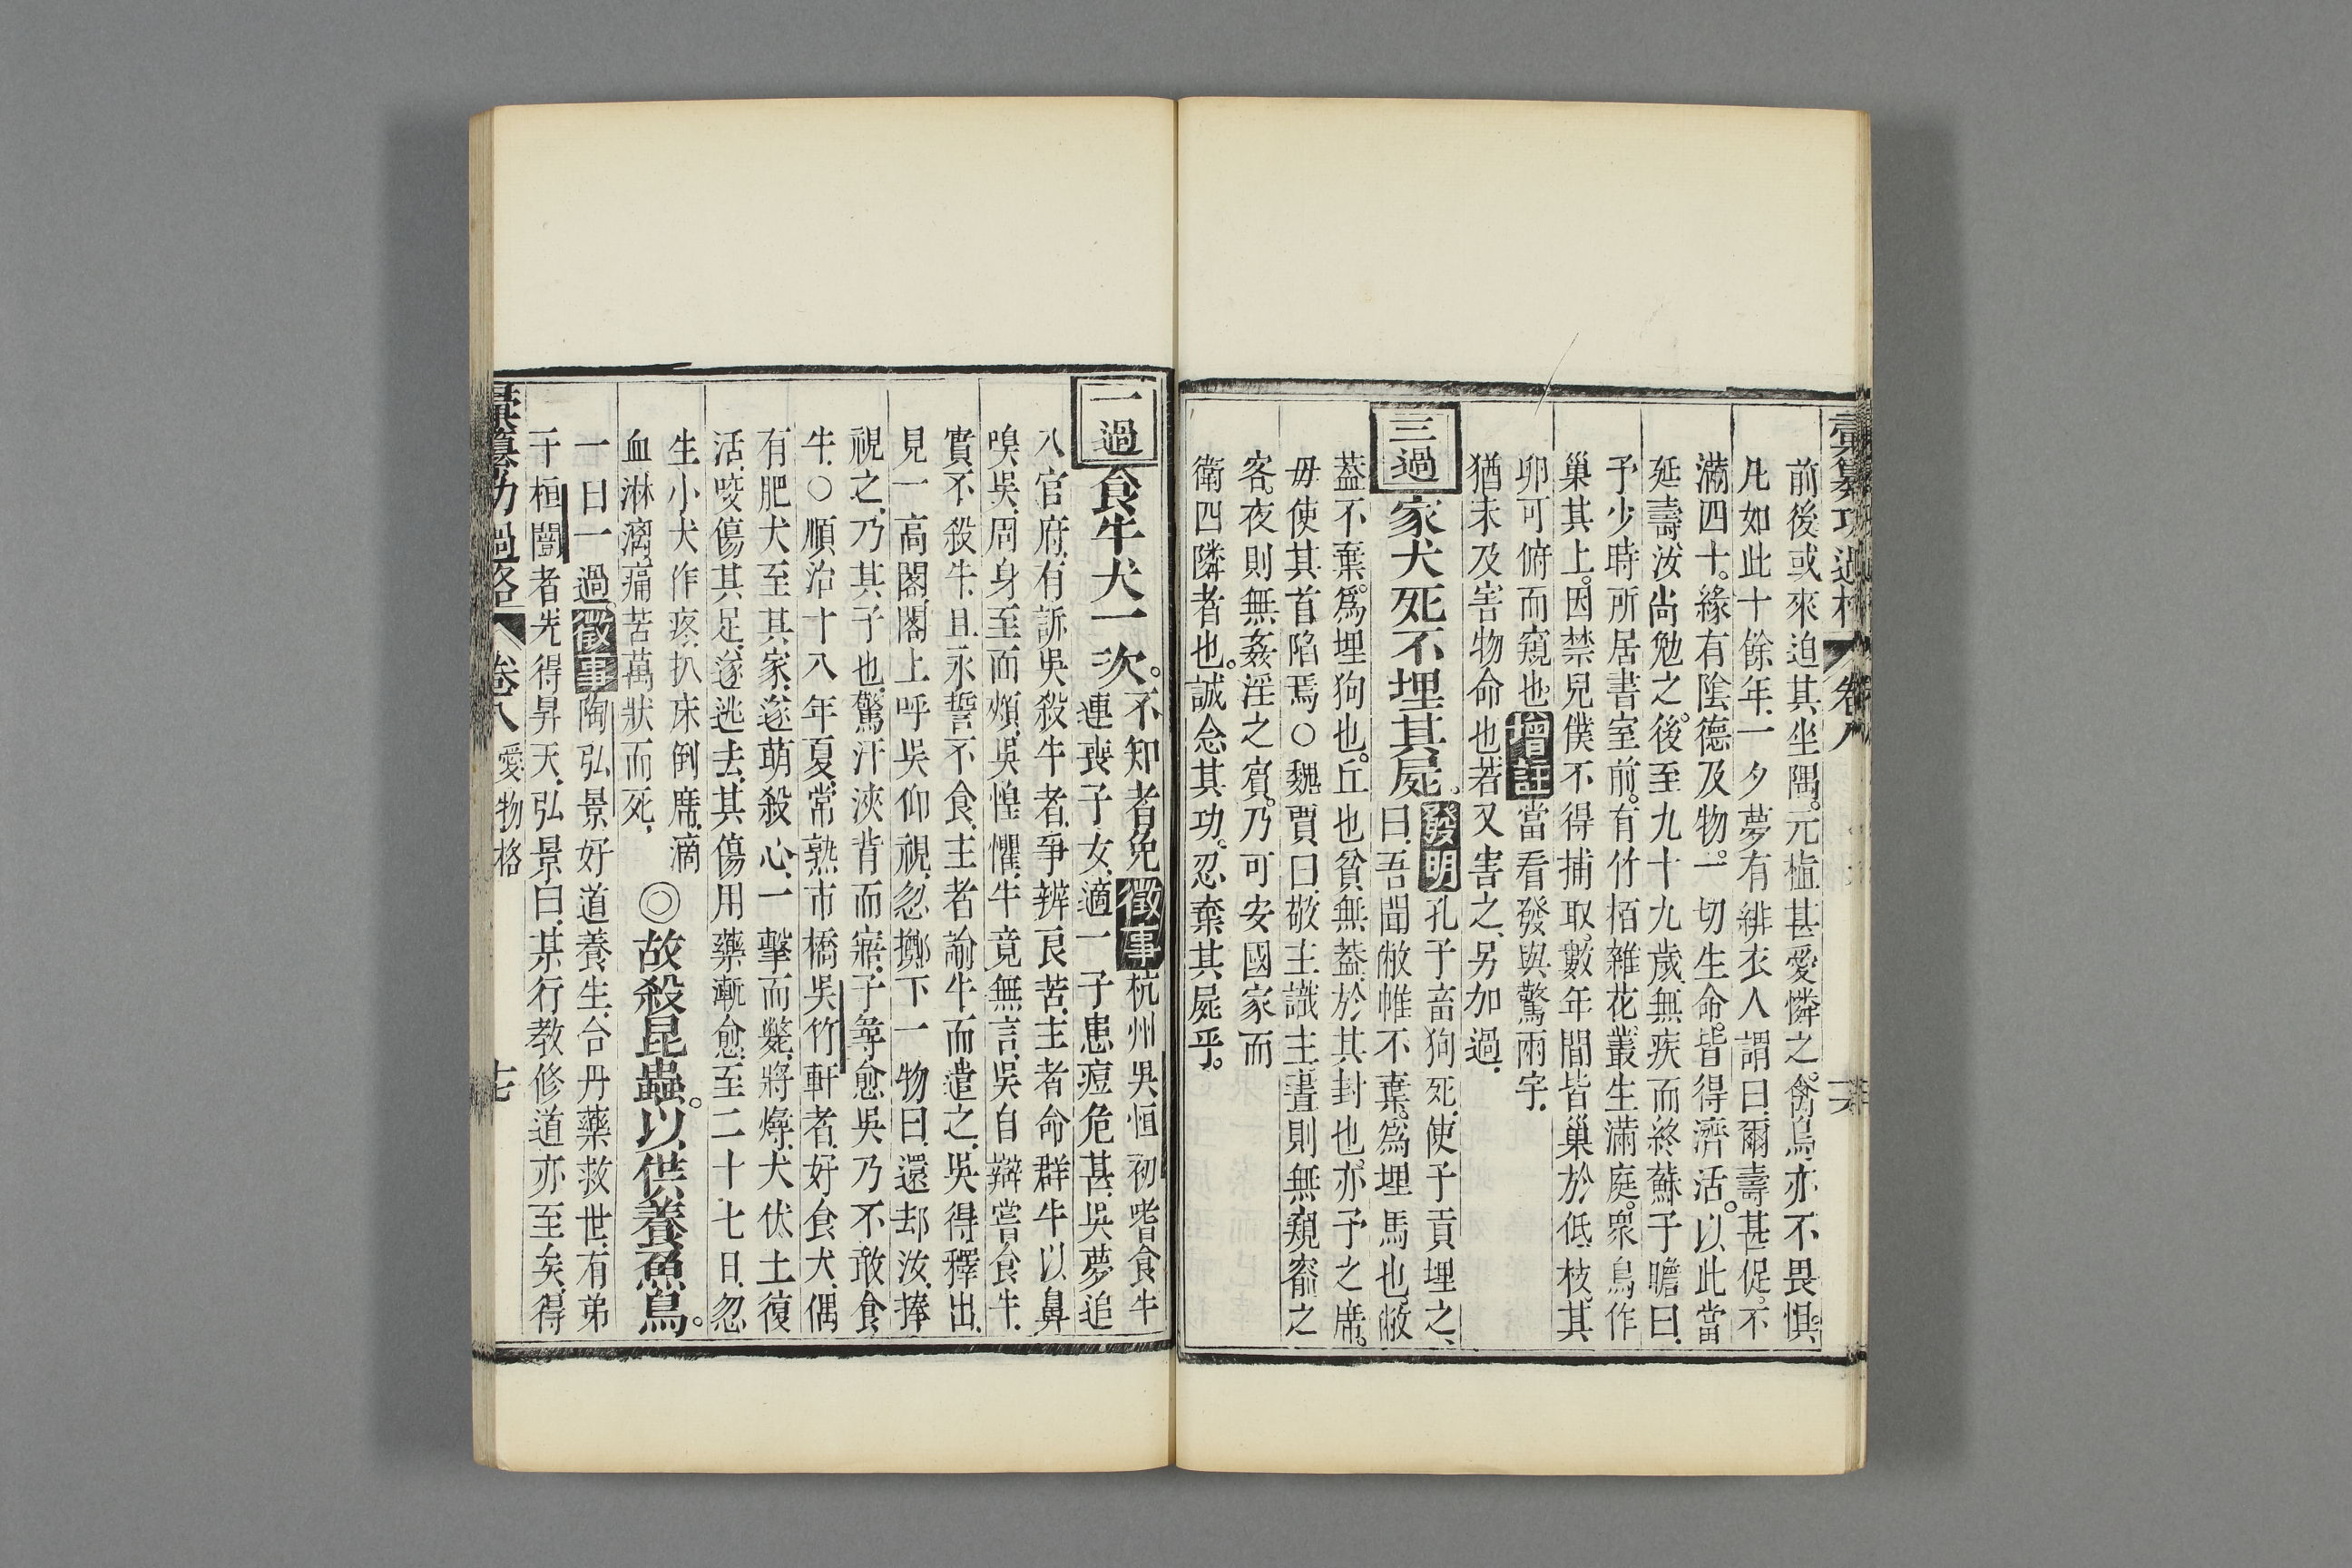 彙纂功過格 卷八
前後或來迫其坐隅。元植甚愛憐之。禽鳥亦不畏懼。
凡如此十餘年。一夕夢有緋衣人謂曰。爾壽甚促。不
滿四十。緣有陰德及物。一切生命。皆得濟活。以此當
延壽。汝尚勉之。後至九十九歲。無疾而終。蘇子瞻曰。
予少時所居書室前。有竹栢雜花叢生滿庭。眾鳥作
巢其上。因禁兒僕不得捕取。數年間皆巢於低枝。其
卵可俯而窺也。增註當看發與驚兩字。
猶未及害物命也。若又害之。另加過。
三過家犬死不埋其屍。發明孔子畜狗死。使子貢埋之、
曰。吾聞敝帷不棄。為埋馬也。敝
蓋不棄。為埋狗也。丘也貧無蓋。於其封也。亦予之席。
毋使其首陷焉○魏賈曰。敬主識主。晝則無窺窬之
客。夜則無姦淫之賓。乃可安國家而
衛四隣者也。誠念其功。忍棄其屍乎。
一過食牛犬一次。不知者免徵事杭州吳恒初嗜食牛
連喪子女。適一子患痘危甚。吳夢追
入官府。有訴吳殺牛者。爭辨良苦。主者命群牛以鼻
嗅吳。周身至而頰。吳惶懼。牛竟無言。吳自辯嘗食牛。
實不殺牛。且永誓不食。主者諭牛而遣之。吳得釋出。
見一高閣。閣上呼吳仰視。忽擲下一物曰。還却汝。捧
視之。乃其子也。驚汗浹背而寤。子尋愈。吳乃不敢食
牛。○順治十八年夏。常熟市橋吳竹軒者。好食犬。偶
有肥犬至其家。遂萌殺心。一擊而斃。將燖。犬伏土復
活。咬傷其足。遂逃去。其傷用藥漸愈。至二十七日。忽
生小犬作疼。扒床倒席。滴
血淋漓。痛苦萬狀而死。◎故殺昆蟲。以供養魚鳥。
一日一過徵事陶弘景好道養生。合丹藥救世。有弟
子桓闓者。先得昇天。弘景曰。某行教修道亦至矣。得
彙纂功過格 卷八 愛物格 十七